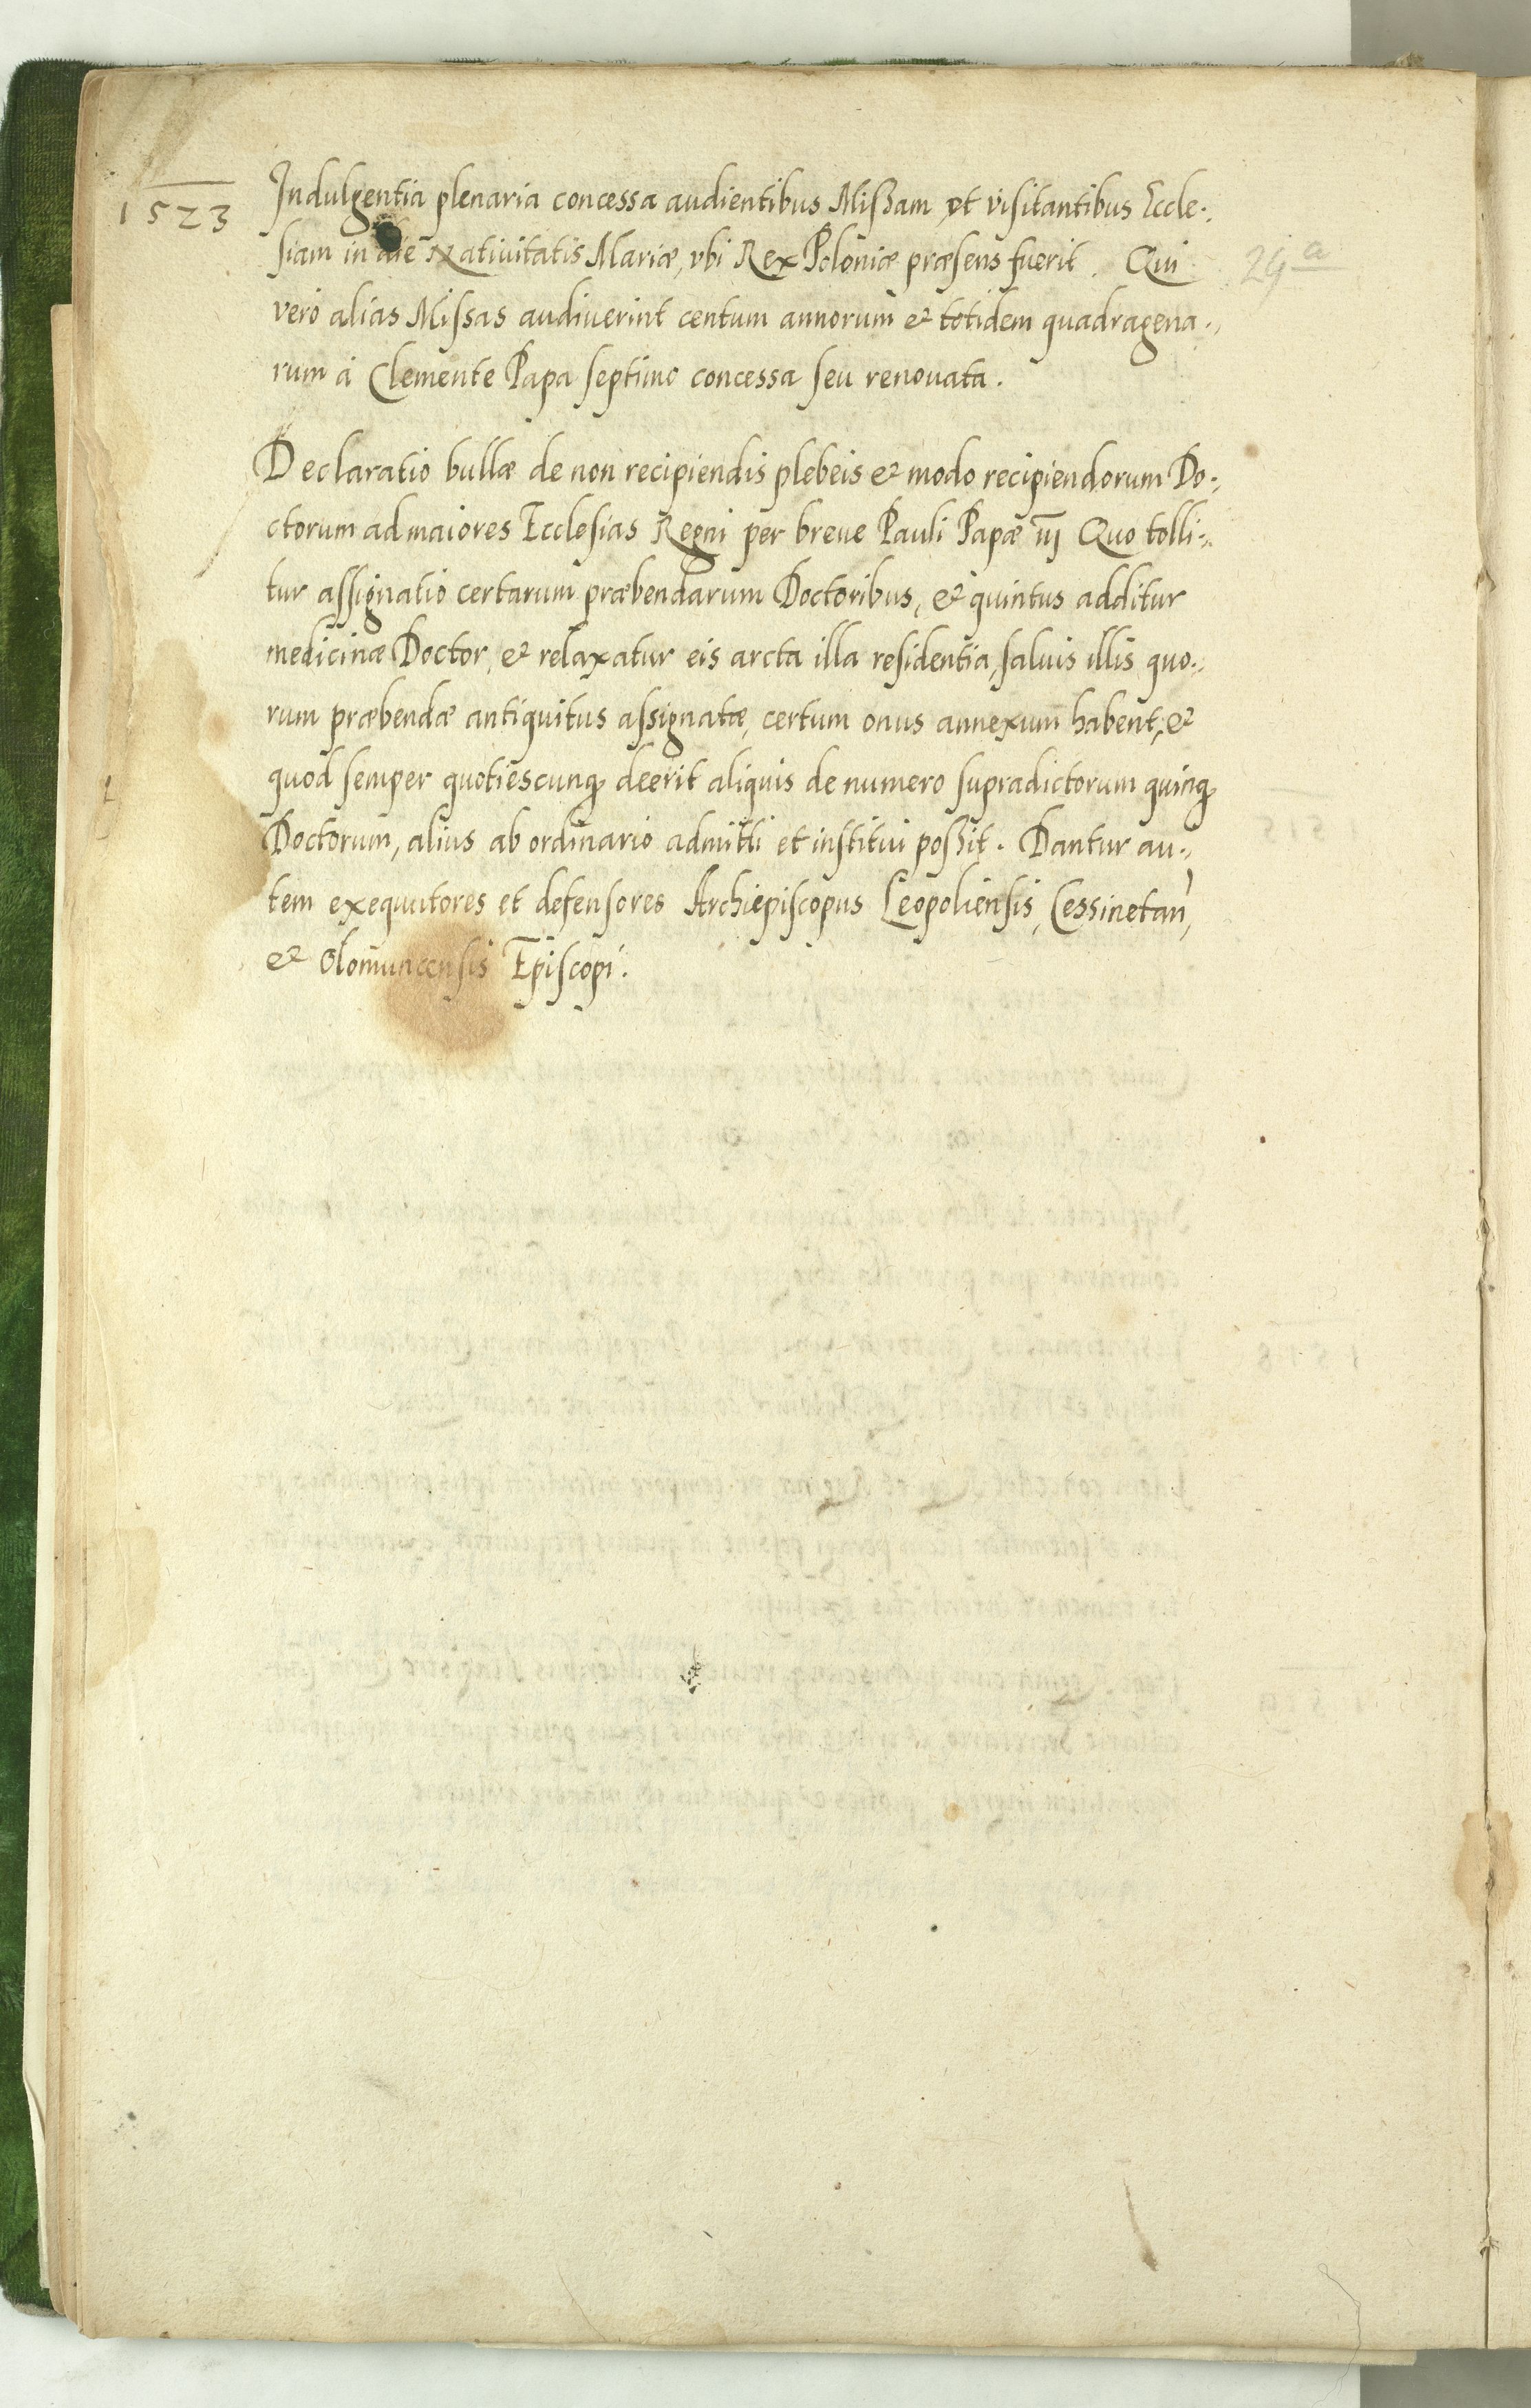 1523
Indulgentia plenaria concessa audientibus Missam et visitantibus Eccle-
siam in die Natiuitatis Mariæ, vbi Rex Poloniæ præsens fuerit. Qui
29a
vero alias Missas audiuerint centum annorum et totidem quadragena-
rum à Clemente Papa septimo concessa seu renouata.
Declaratio bullæ de non recipiendis plebeis et modo recipiendorum Do-
ctorum ad maiores Ecclesias Regni per breue Pauli Papæ iij Quo tolli-
tur assignatio certarum præbendarum Doctoribus, et quintus additur
medicinæ Doctor, et relaxatur eis arcta illa residentia, saluis illis quo-
rum præbendæ antiquitus assignatæ, certum onus annexum habent, et
quod semper quotiescunq deerit aliquis de numero supradictorum quinq
Doctorum, alius ab ordinario admitti et institui possit. Dantur au-
tem exequutores et defensores Archiepiscopus Leopoliensis, Cessinetan,
et Olomuncensis Episcopi.